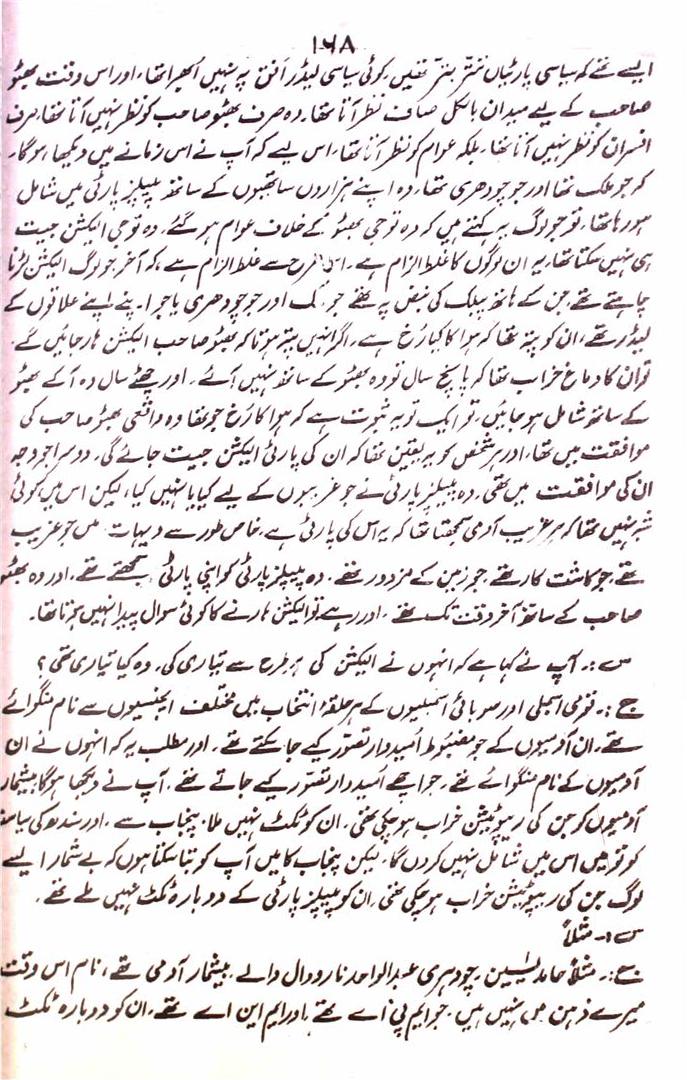 ۱۶۸
ایسے تھے کہ سیاسی پارٹیاں تتر بتر تھیں، کوئی سیاسی لیڈر اُفق پہ نہیں اُبھرا تھا، اور اس وقت بھٹو
صاحب کے لیے میدان بالکل صاف نظر آتا تھا۔ وہ صرف بھٹو صاحب کو نظر نہیں آتا تھا، صرف
افسران کو نظر نہیں آتا تھا، بلکہ عوام کو نظر آتا تھا، اس لیے کہ آپ نے اس زمانے میں دیکھا ہو گا،
کہ جو ملک تھا اور جو چودھری تھا، وہ اپنے ہزاروں ساتھیوں کے ساتھ پیپلز پارٹی میں شامل
ہو رہا تھا، تو جو لوگ یہ کہتے ہیں کہ وہ تو جی بھٹو کے خلاف عوام ہو گئے، وہ تو جی الیکشن جیت
ہی نہیں سکتا تھا، یہ ان لوگوں کا غلط الزام ہے۔ اس طرح سے غلط الزام ہے، کہ آخر جو لوگ الیکشن لڑنا
چاہتے تھے، جن کے ہاتھ پبلک کی نبض پہ تھے، جو اور جو چودھری یا جو اپنے اپنے علاقوں کے
لیڈر تھے، ان کو پتہ تھا کہ ہوا کا کیا رُخ ہے، اگر انہیں پتہ ہوتا کہ بھٹو صاحب الیکشن ہار جائیں گے،
تو ان کا دماغ خراب تھا کہ پانچ سال تو وہ بھٹو کے ساتھ نہیں آئے، اور چھٹے سال وہ آ کے بھٹو
کے ساتھ شامل ہو جائیں، تو ایک تو یہ ثبوت ہے کہ ہوا کا رُخ جو تھا وہ واقعی بھٹو صاحب کی
موافقت میں تھا، اور ہر شخص کو یہ یقین تھا کہ ان کی پارٹی الیکشن جیت جائے گی، دوسرا جو وجہ
ان کی موافقت میں تھی، وہ پیپلز پارٹی نے جو غریبوں کے لیے کیا یا نہیں کیا، لیکن اس میں کوئی
شبہ نہیں تھا کہ ہر غریب آدمی سمجھتا تھا کہ یہ اس کی پارٹی ہے، خاص طور سے دیہات میں جو غریب
تھے، جو کاشت کار تھے، جو زمین کے مزدور تھے، وہ پیپلز پارٹی کو اپنی پارٹی سمجھتے تھے، اور وہ بھٹو
صاحب کے ساتھ آخر وقت تک تھے، اور رہے تو الیکشن ہارنے کا کوئی سوال پیدا نہیں ہوتا تھا۔
س :۔ آپ نے کہا ہے کہ انہوں نے الیکشن کی ہر طرح سے تیاری کی، وہ کیا تیاری تھی؟
ج :۔ قومی اسمبلی اور صوبائی اسمبلیوں کے ہر حلقۂ انتخاب میں مختلف ایجنسیوں سے نام منگوائے
تھے، ان آدمیوں کے جو مضبوط اُمیدوار تصوّر کیے جا سکتے تھے، اور مطلب یہ کہ انہوں نے ان
آدمیوں کے نام منگوائے تھے، جو اچھے اُمیدوار تصوّر کیے جاتے تھے، آپ نے دیکھا ہو گا، بیشمار
آدمیوں کو جن کی ریپوٹیشن خراب ہو چکی تھی، ان کو ٹکٹ نہیں ملا، پنجاب سے، اور سندھ کی سیاست
کو تو میں اس میں شامل نہیں کروں گا، لیکن پنجاب کا میں آپ کو بتا سکتا ہوں کہ بے شمار ایسے
لوگ جن کی ریپوٹیشن خراب ہو چکی تھی، ان کو پیپلز پارٹی کے دوبارہ ٹکٹ نہیں ملے تھے۔
س :۔ مثلاً
ج :۔ مثلاً حامد یٰسین، چودہری عبدالواحد نارووال والے، بیشمار آدمی تھے، نام اس وقت
میرے ذہن میں نہیں ہیں، جو ایم پی اے تھے، اور ایم این اے تھے، ان کو دوبارہ ٹکٹ